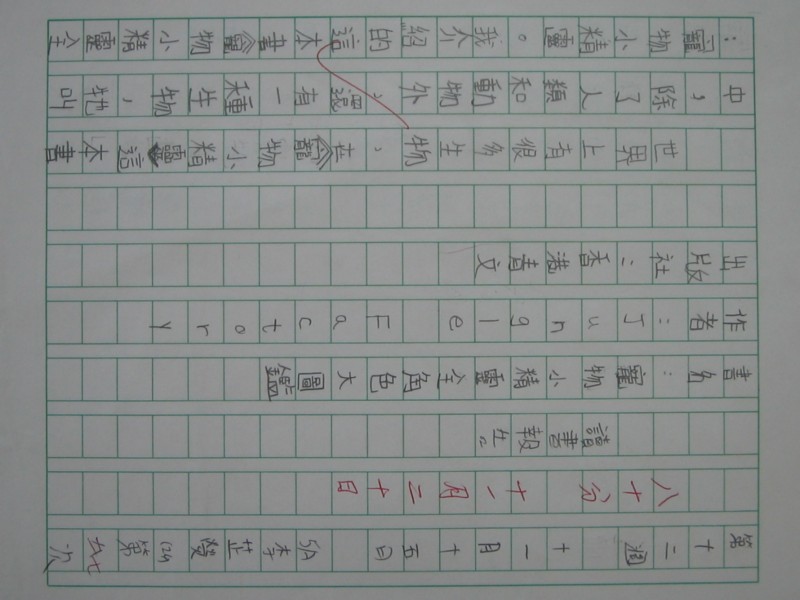 第十二週 十一月十五日 5A 李芷雙 (24) 第
八十分 十一月二十日
讀書報告
書名：寵物小精靈全角色大圖鑑
作者：Jungle Factory
出版社：香港青文
世界上有很多生物，在《寵物小精靈》這本書
中，除了人類和動物外，還有一種生物，牠叫
：寵物小精靈。我介紹的這本書《寵物小精靈全